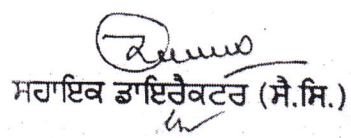 ਸਹਾਇਕ ਡਾਇਰੈਕਟਰ (ਸੈ.ਸਿ.)